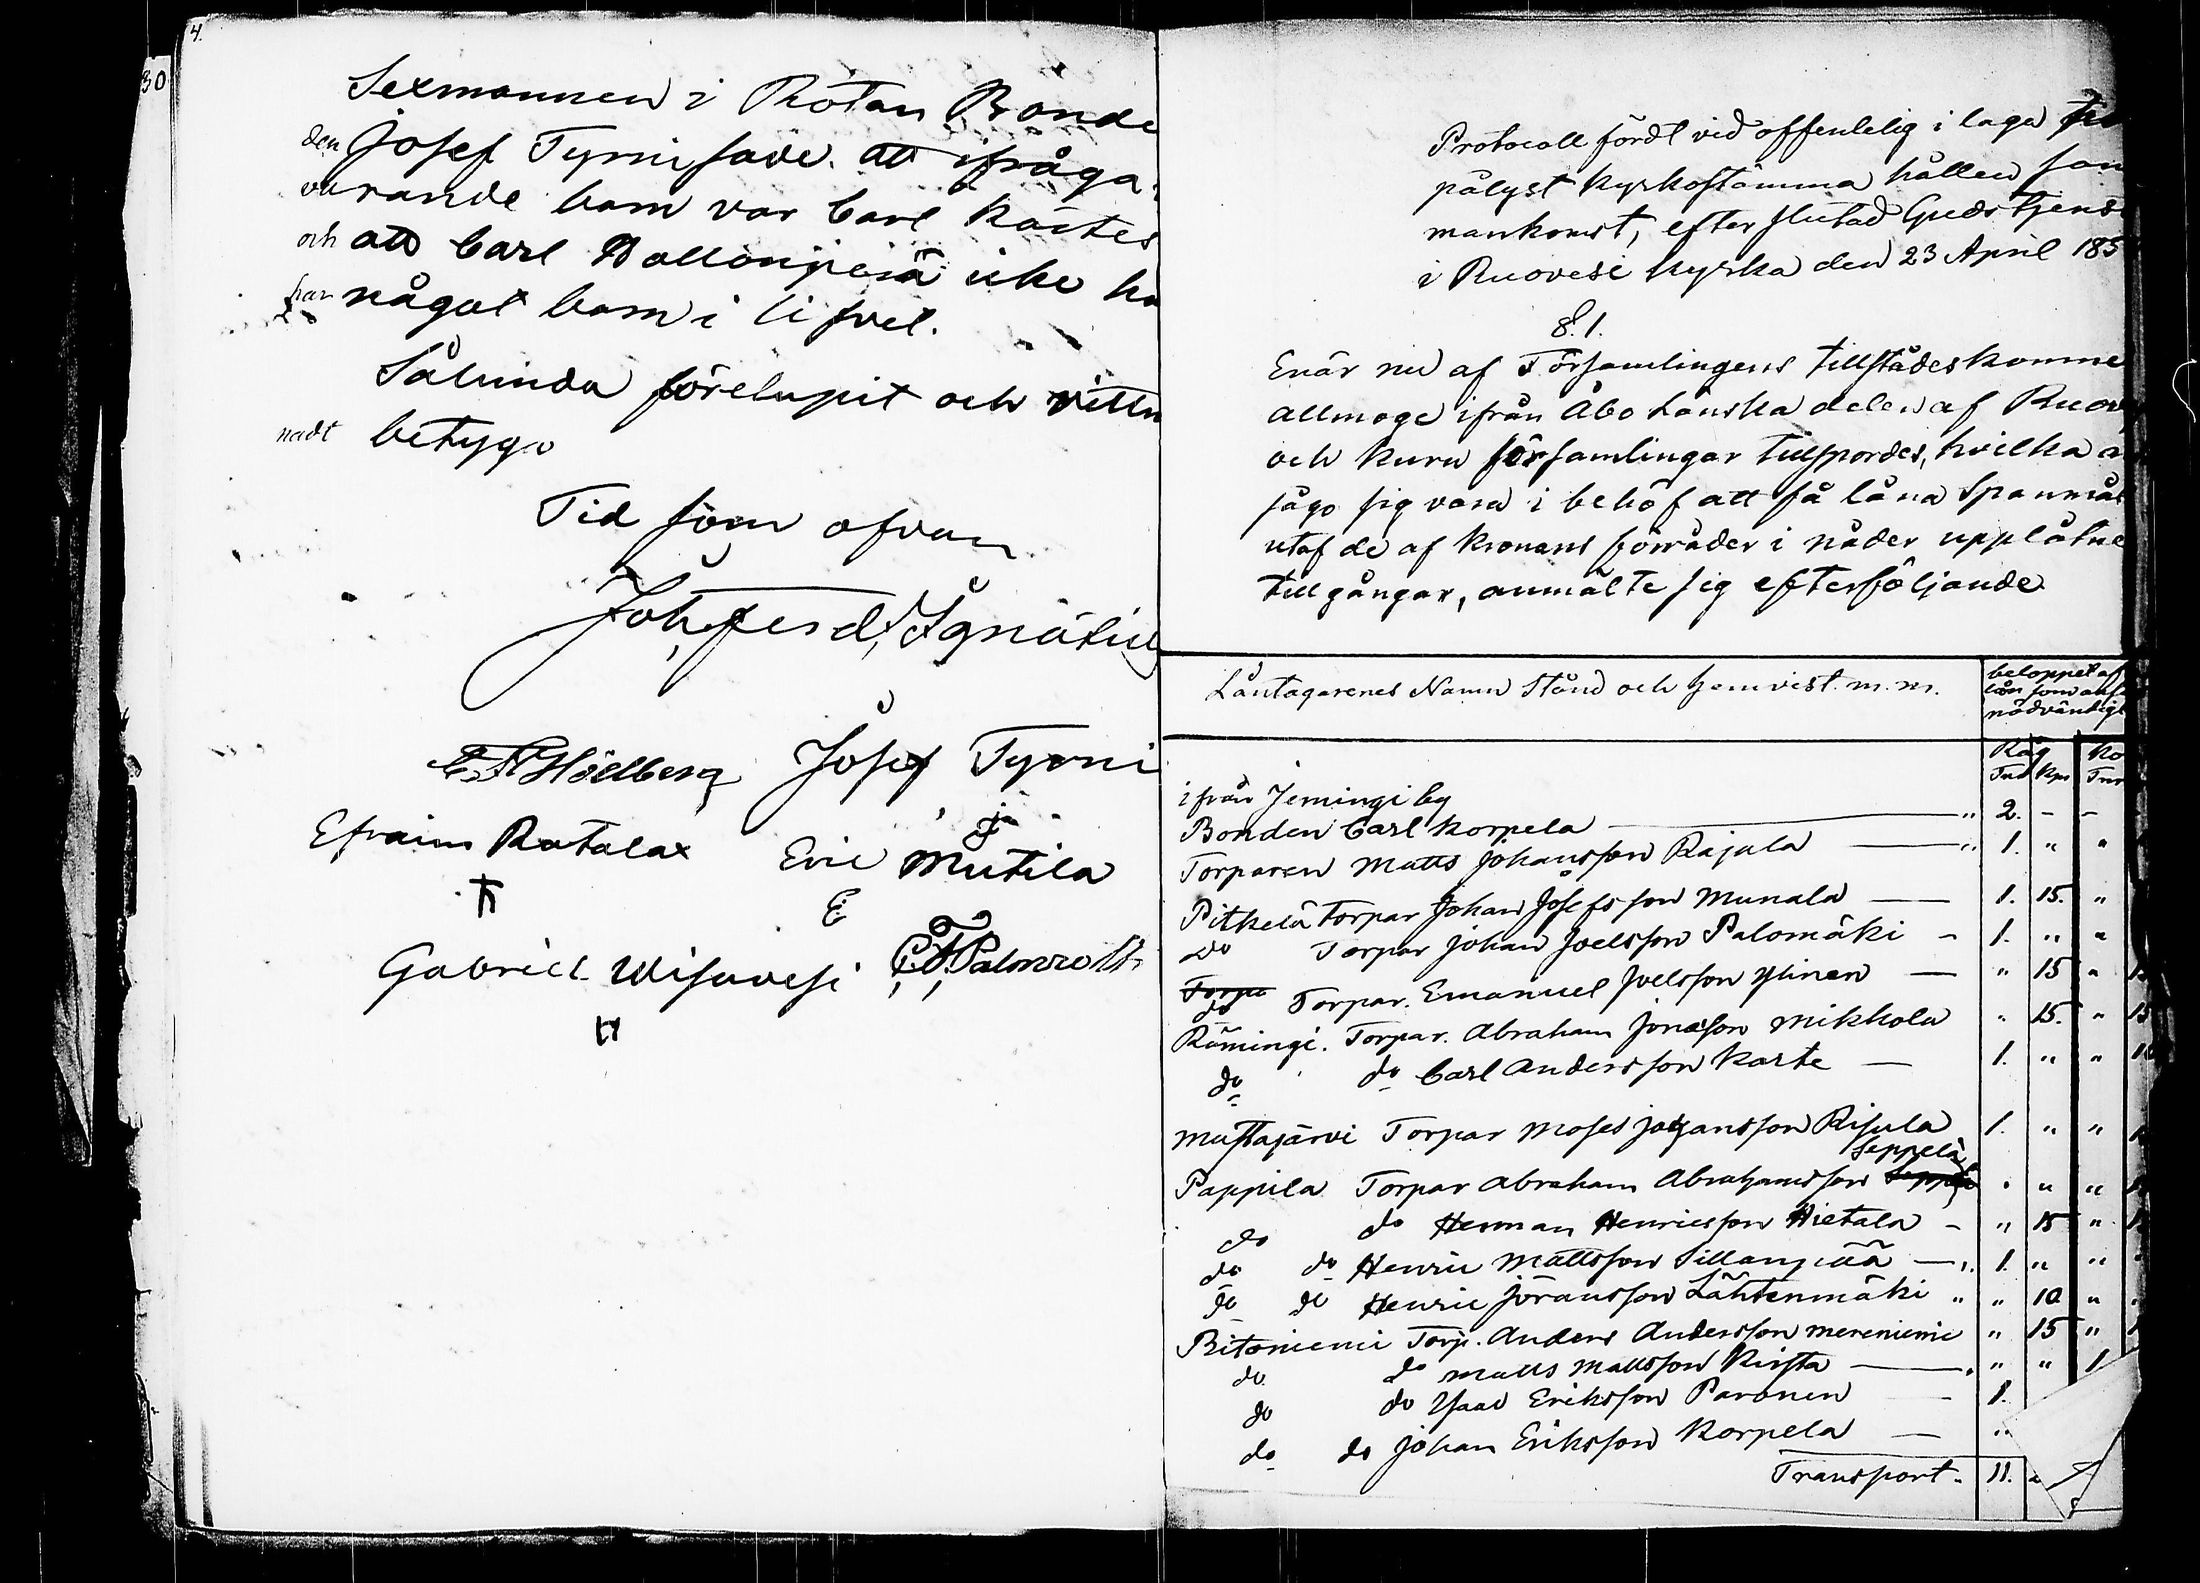 4.
30
Sexmannen i Rotan Bonde
den Josef Tyrni sade att ifråga
varande barn var Carl Kartes
och att Carl icke ha
har något barn i lifvet.
Sålunda förelupit och vittn
nadt betygo
Tid som ofvan
Joh. Ferd. Ignatius
Josef Tyrni
Efraim Ratala Eric Mutila
E
Gabriel Wisuvesi C. F. Palmroth
Protocoll fördt vid offentelig i laga
pålyst Kyrkostämma hållen sam
mankomst, efter slutad Gudstjenst
i Ruovesi Kyrka den 23 April 185
§. 1.
Enär nu af Församlingens tillstädeskomne
allmoge ifrån Åbo Länska delen af Ruov
och Kuru församlingar tillspordes, hvilka a
sågo sig vara i behof att få låna Spanmål
utaf de af Kronans förråder i nåder upplåtne
tillgångar, anmälte sig efterföljande
Låntagarenes Namn Stånd och hemvist. m.m. beloppet af
lån som anse
nödvändigt
Råg Ko
Tnr Kpr Tnr
ifrån Jemingi by
Bonden Carl Korpela — " 2. - -
Torparen Matts Johansson Rajala — " 1. " "
Pitkelä Torpar Johan Josefsson Munala — 1. 15. "
do Torpar Johan Joelsson Palomäki - 1. " "
Torpa
do Torpar. Emanuel Joelsson Ylinen — " 15 "
Rämingi. Torpar. Abraham Jonasson Mikkola " 15. " 15
do do Carl Andersson Karte — 1. " "
Mustajärvi Torpar Moses Johansson Risula 1. " "
Seppelä
Pappila Torpar Abraham Abrahamsson " " "
do do Herman Henricsson Hietala - " 15 "
do do Henric Mattsson Sillanpää — " 1. " "
do do Henric Jöransson Lähtenmäki " " 10 "
Ritoniemi Torp. Anders Andersson Mereniemi " 15 "
do do Matts Mattsson Kirsta — " " " 1
do do Isaac Eriksson Paronen - 1.
do do Johan Eriksson Korpela — "
Transport. 11.